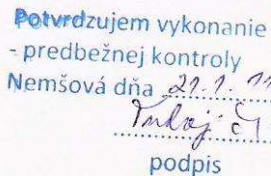 Potvrdzujem vykonanie
- predbežnej kontroly
Nemšová dňa 21.1. 11
podpis